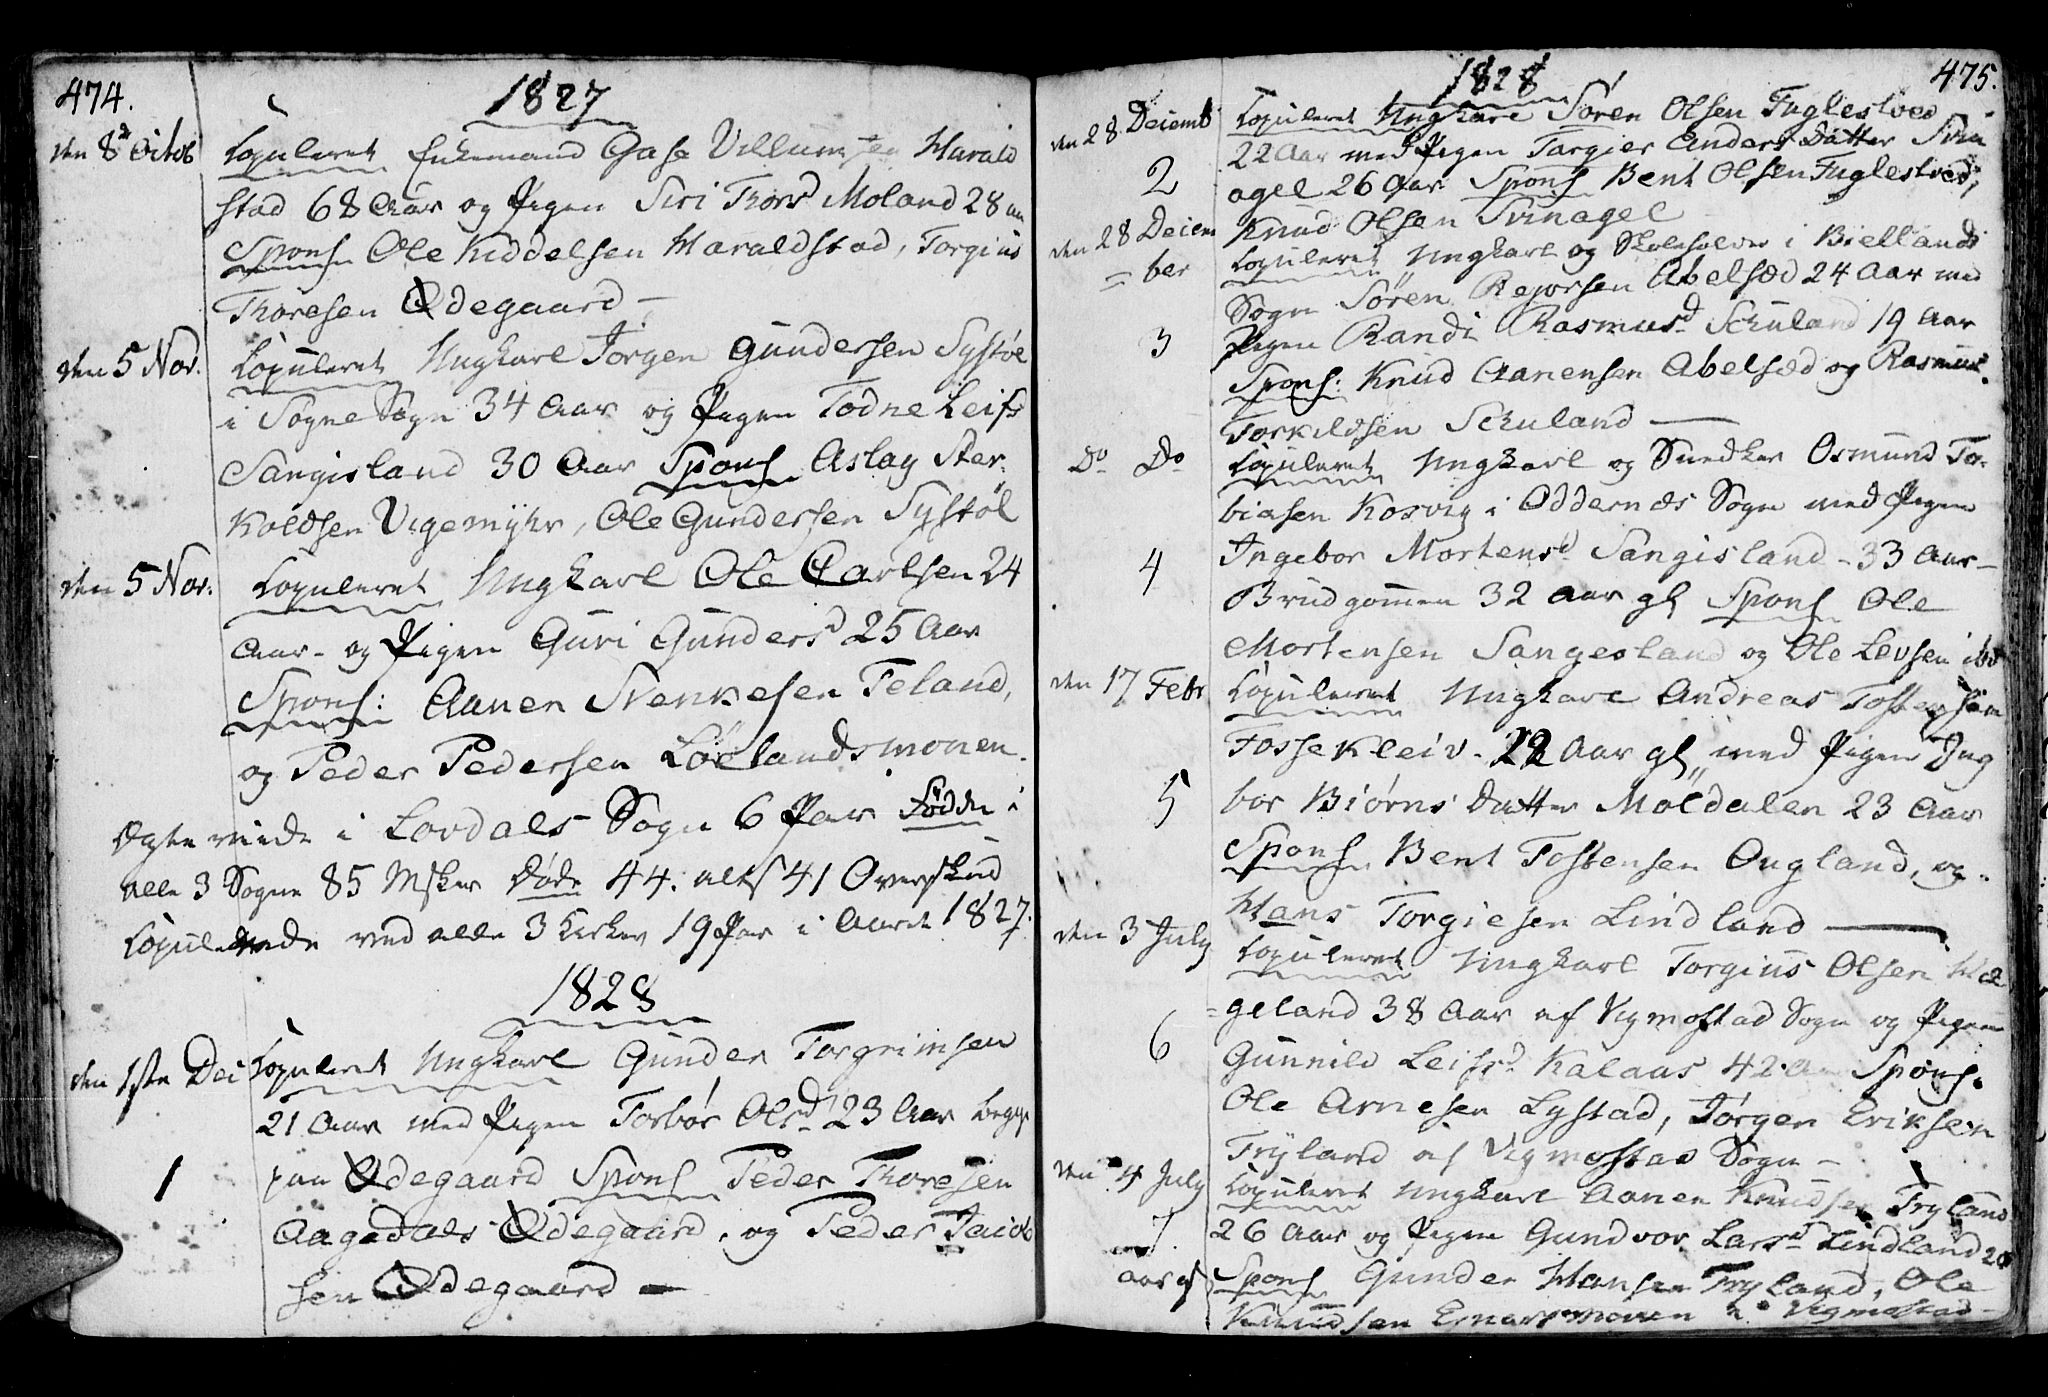 474.
1827
den 8de Octob Copuleret Enkemand Gase Villumsen Harald
stad 68 Aar og Pigen Siri Thorsd Moland 28 aar
Spons Ole Kiddelsen Haraldstad, Torgius
Thoresen Ødegaard –
den 5 Nov. Copuleret Ungkarl Jörgen Gundersen Systöl
i Sogne Sogn 34 Aar og Pigen Todne Leifs
Sangisland 30 Aar Spons Aslag Ster
Koldsen Vigemyhr, Ole Gundersen Systöl
den 5 Nov. Copuleret Ungkarl Ole Carlsen 24
Aar – og Pigen Guri Gundersd 25 Aar
Spons: Aanen Svenkesen Feland,
og Peder Pedersen Lörlandsmonen.
Egteviede i Lovdals Sogn 6 Par Födde i
alle 3 Sogne 85 Msker Döde 44. alts 41 Overskud
Copulerede ved alle 3 Kirker 19 Par i Aaret 1827.
1828
den 1ste Dec Copuleret Ungkarl Gunder Torgrimsen
21 Aar med Pigen Torbör Olsd 23 Aar begge
1 paa Ødegaard Spons Peder Thoresen
Aagedals Ødegaard, og Peder Jacob
sen Ødegaard –
475.
1828
den 28 Decemb Copuleret Ungkarl Sören Olsen Fuglestved
22 Aar med Pigen Targier Anders Datter Svin
2 agel 26 Aar Spons Bent Olsen Fuglestved,
Knud Olsen Svinagel
den 28 Decem Copuleret Ungkarl og Skoleholder i Biellands
= ber Sogn Sören Rejorsen Abelsæd 24 Aar med
3 Pigen Randi Rasmusd Schuland 19 Aar
Spons: Knud Aanensen Abelsæd og Rasmus
Torkildsen Schuland –
Do Do Copuleret Ungkarl og Snedker Osmund To-
biasen Kosvig i Oddernæs Sogn med Pigen
4 Ingebor Mortensd Sangisland – 33 Aar –
Brudgommen 32 Aar gl Spons Ole
Mortensen Sangesland og Ole Levsen ibd
den 17 Febr Copuleret Ungkarl Andreas Tostensen
Fossekleiv – 22 Aar gl med Pigen Ing
5 bor Biörns Datter Moldalen 23 Aar
Spons Bent Tostensen Ougland, og
Hans Torgiesen Lindland –
den 3 July Copuleret Ungkarl Torgius Olsen Hæ
= geland 38 Aar af Vigmostad Sogn og Pigen
6 Gunnild Leifsd Kalaas 42 Aar Spons.
Ole Arnesen Lystad, Jörgen Eriksen
Tryland af Vigmostad Sogn –
den 4 July Copuleret Ungkarl Aanen Knudsen Tryland
7 26 Aar og Pigen Gundvor Larsd Lindland 20
aar gl Spons Gunder Hansen Tryland, Ole
Knudsen Ersmonen Vigmostad –